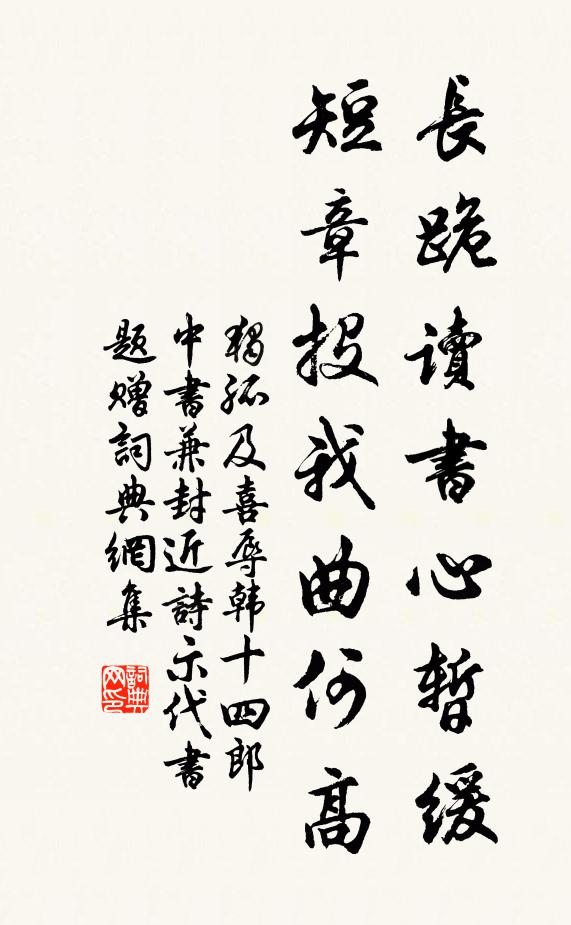 長跪讀書心暫緩
短章投我曲何高
獨孤及喜辱韩十四郎
中書兼封近詩示代書
题赠詞典網集
詞典网印